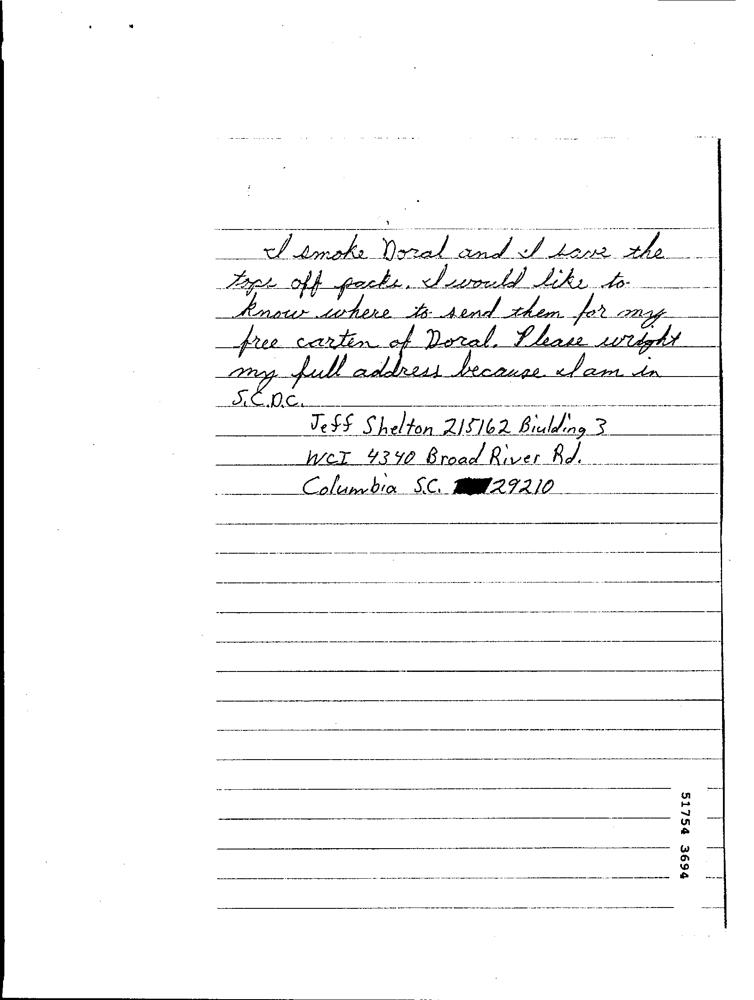 I smoke Doral and I save the
tops off packs. I would like to
know where to send them for my
free carten of Doral. Please wright
my full address because I am in
S.C.D.C.
Jeff Shelton 215162 Biulding 3
WCI 4340 Broad River Rd.
Columbia S.C. 29210
51754 3694